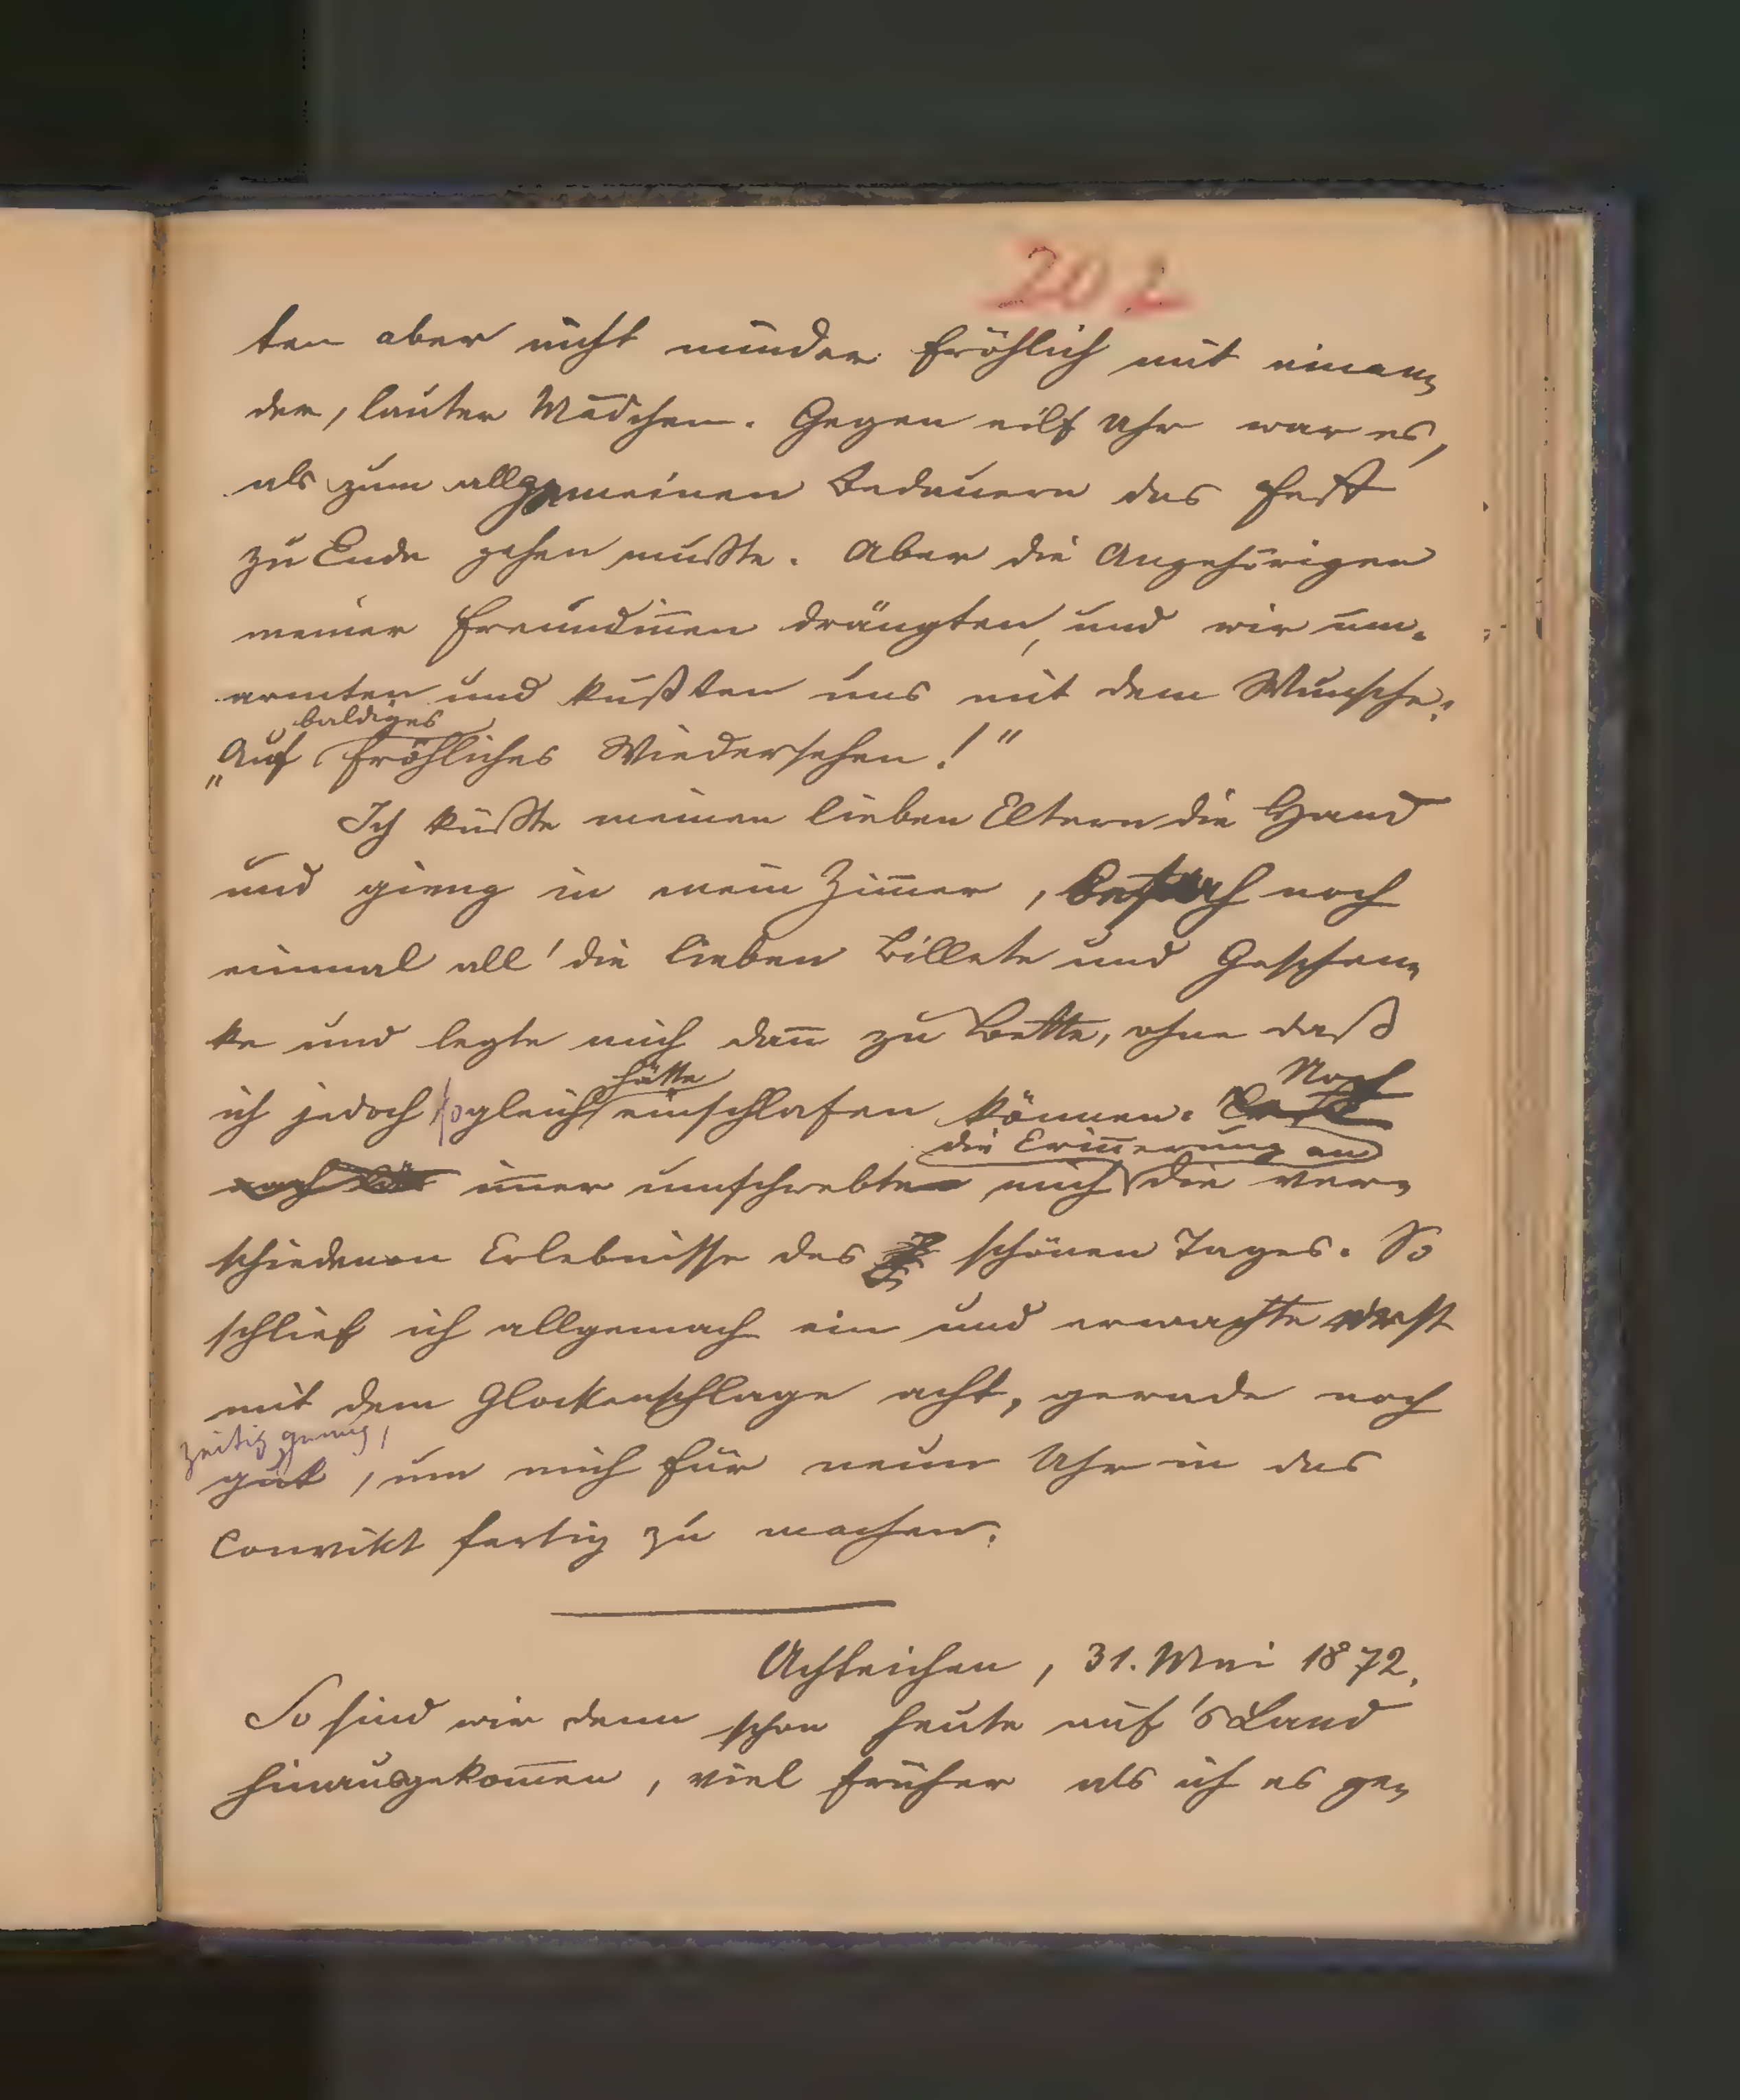 202
ten aber nicht minder fröhlich mit einan-
der, lauter Mädchen. Gegen eilf Uhr war es,
als zum allgemeinen Bedauern das Fest
zu Ende gehen mußte. Aber die Angehörigen
meiner Freundiñen drängten, und wir um-
armten und küßten uns mit dem Wunsche:
baldiges
„Auf fröhliches Wiedersehen!“
Ich küßte meinen lieben Eltern die Hand
und gieng in mein Zim̄er, besah noch
einmal all' die lieben Billete und Geschen-
ke und legte mich dañ zu Bette, ohne daß
hätte
Noch
ich jedoch sogleich einschlafen können.
die Eriñerung an
noch im̄er umschwebte mich die ver-
schiedenen Erlebnisse des schönen Tages. So
schlief ich allgemach ein und erwachte erst
mit dem Glockenschlage acht, gerade noch
zeitig genug,
gut, um mich für neun Uhr in das
Convikt fertig zu machen.
Achleichen, 31. Mai 1872.
So sind wir denn schon heute auf's Land
hinausgekom̄en, viel früher als ich es ge-